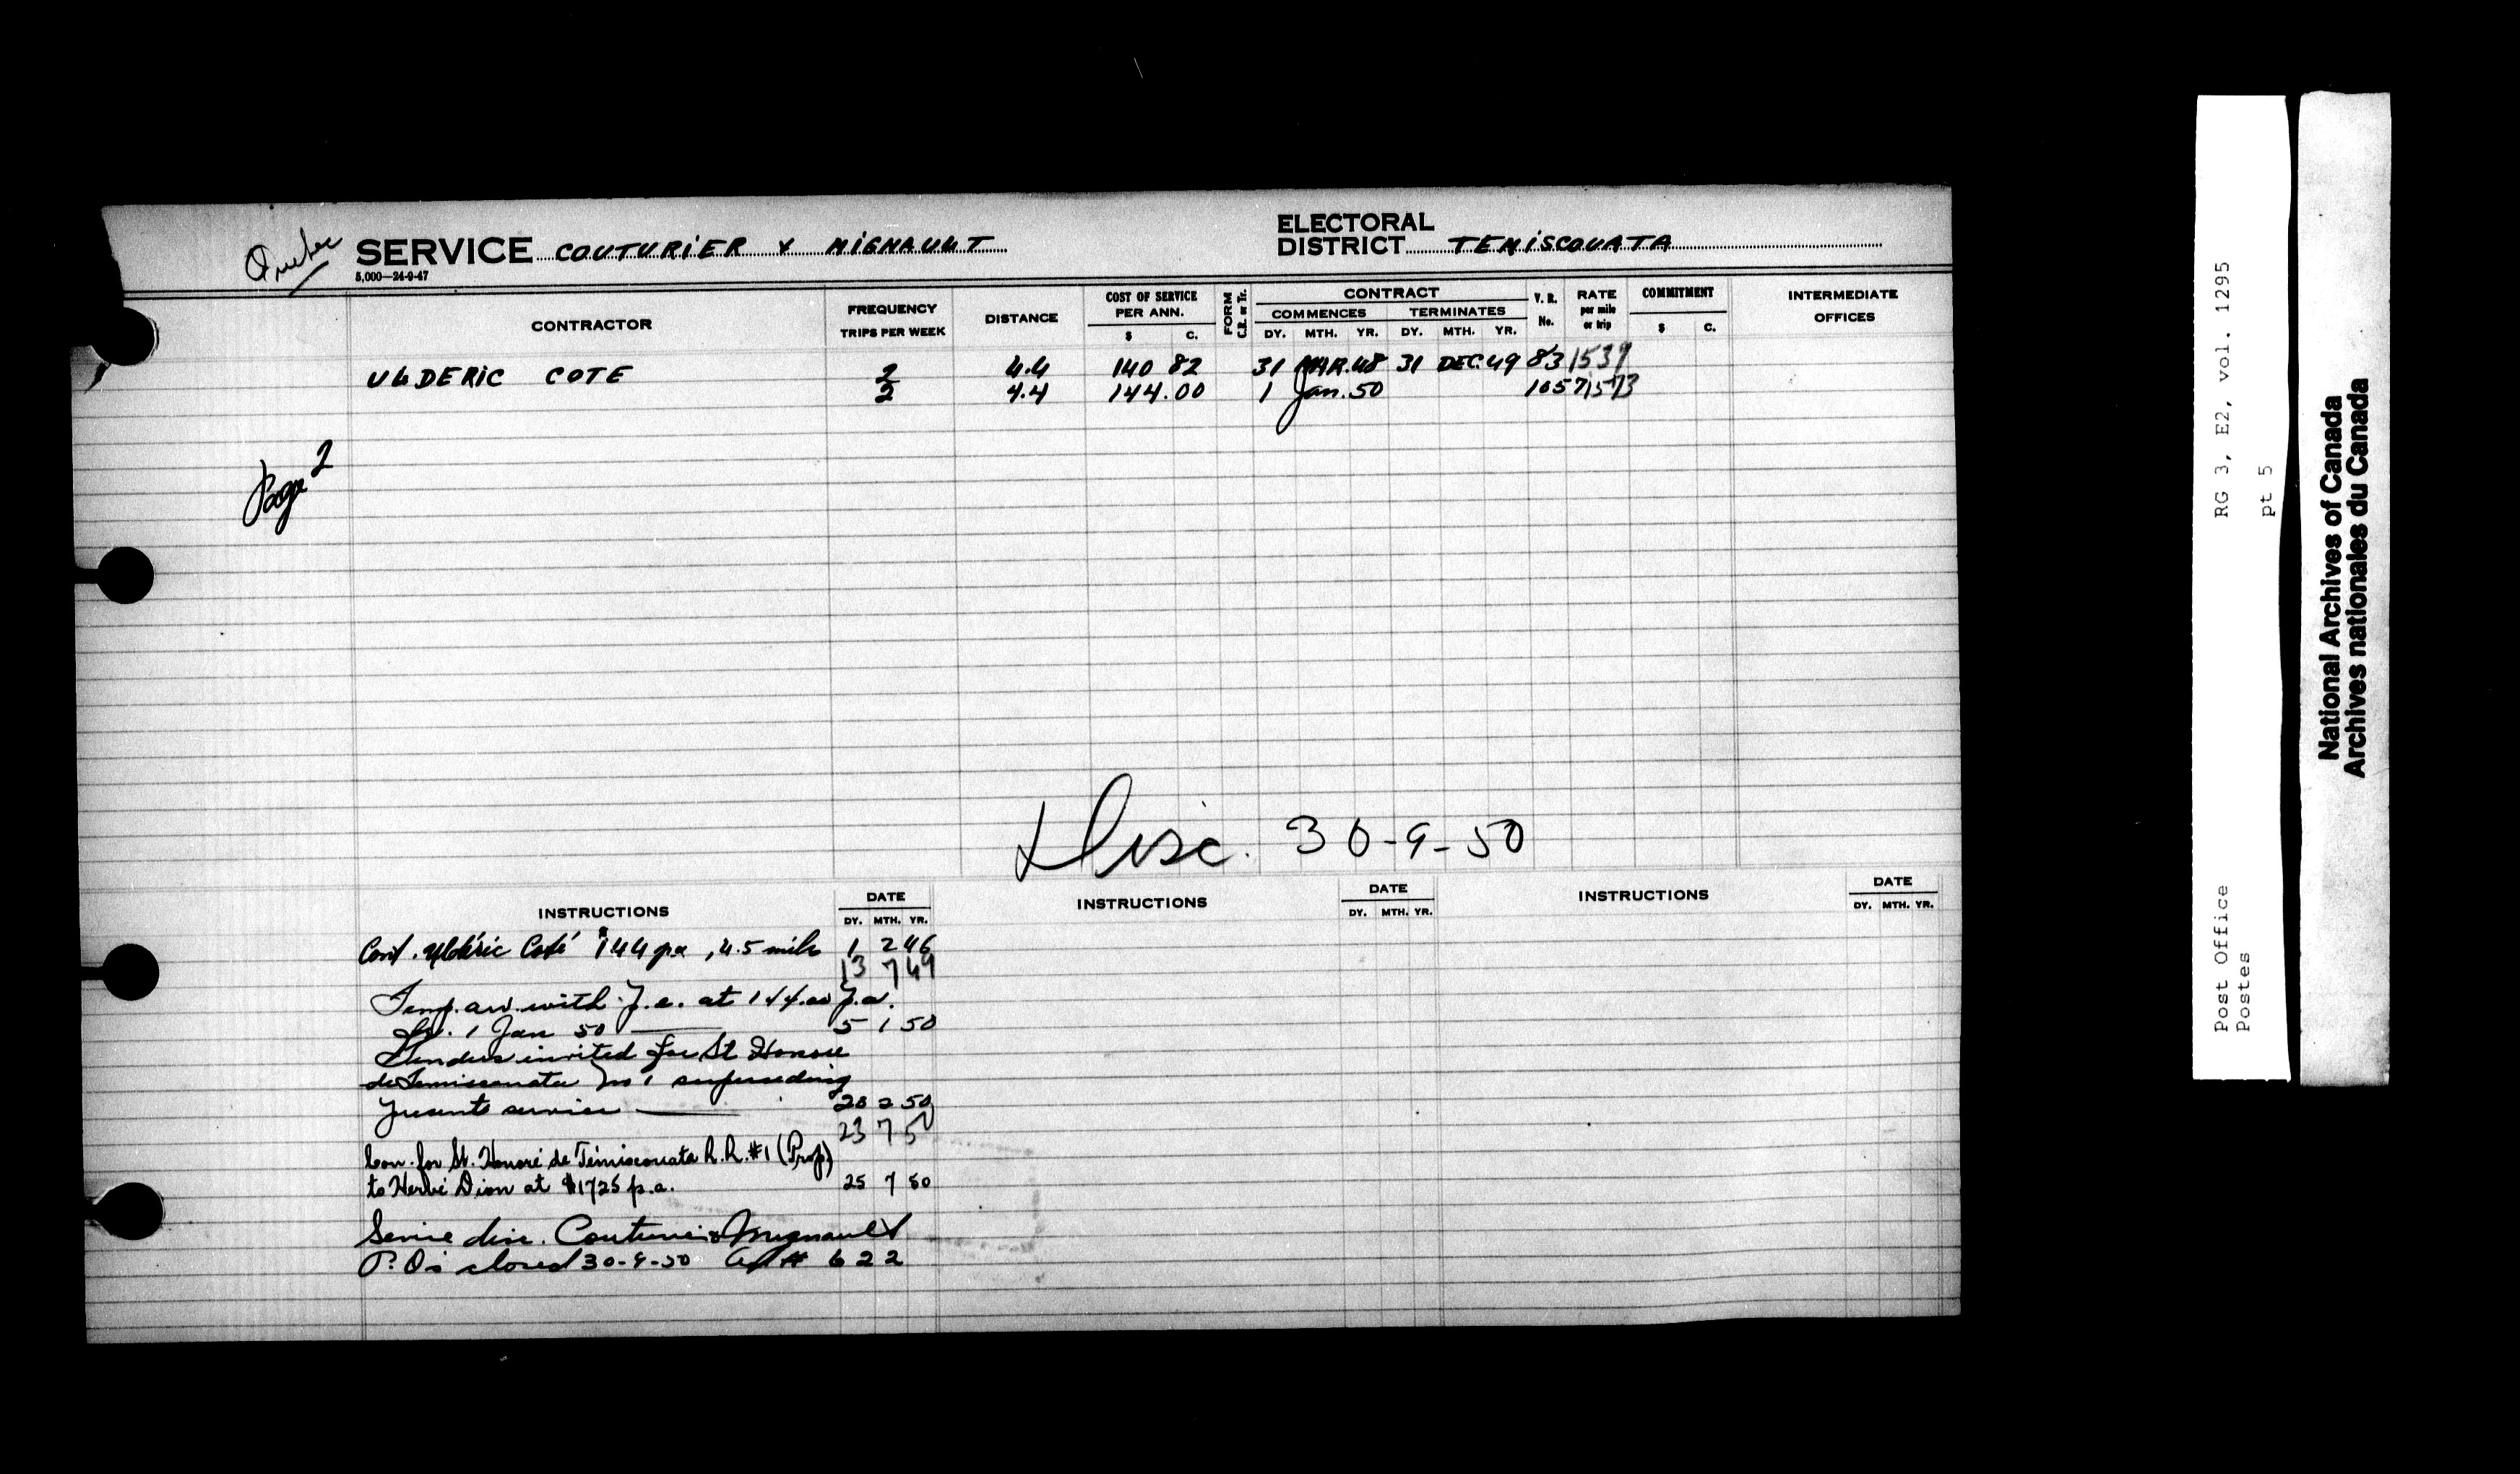 Quebec
SERVICE COUTURIER & MIGNAULT
5,000—24-9-47
ELECTORAL
DISTRICT TEMISCOUATA
CONTRACTOR
FREQUENCY
TRIPS PER WEEK
DISTANCE
COST OF SERVICE
PER ANN.
$ C.
FORM
C.R. or Tr.
CONTRACT
COMMENCES TERMINATES
DY. MTH. YR. DY. MTH. YR.
V. R.
No.
RATE
per mile
or trip
COMMITMENT
$ C.
INTERMEDIATE
OFFICES
ULDERIC COTE 2 4.4 140 82 31 MAR. 48 31 DEC. 49 83 1539
2 4.4 144.00 1 Jan. 50 1657 1573
Page 2
Disc. 30-9-50
INSTRUCTIONS DATE INSTRUCTIONS DATE INSTRUCTIONS DATE
DY. MTH. YR. DY. MTH. YR. DY. MTH. YR.
Cont. Uldéric Coté $144 pa, 4.5 mile 1 2 46
13 7 49
Temp. arr. with P.C. at 144.00 p.a.
fr. 1 Jan 50 5 1 50
Tenders invited for St Honore
de Temiscouata No 1 superseding
present service 20 2 50
23 7 50
Con. for St. Honoré de Témiscouata R.R. #1 (Prop)
to Hervé Dion at $1725 p.a. 25 7 50
Service disc. Couturier & Mignault
P.O's closed 30-9-50 # 622
RG 3, E2, vol. 1295
pt 5
Post Office
Postes
National Archives of Canada
Archives nationales du Canada